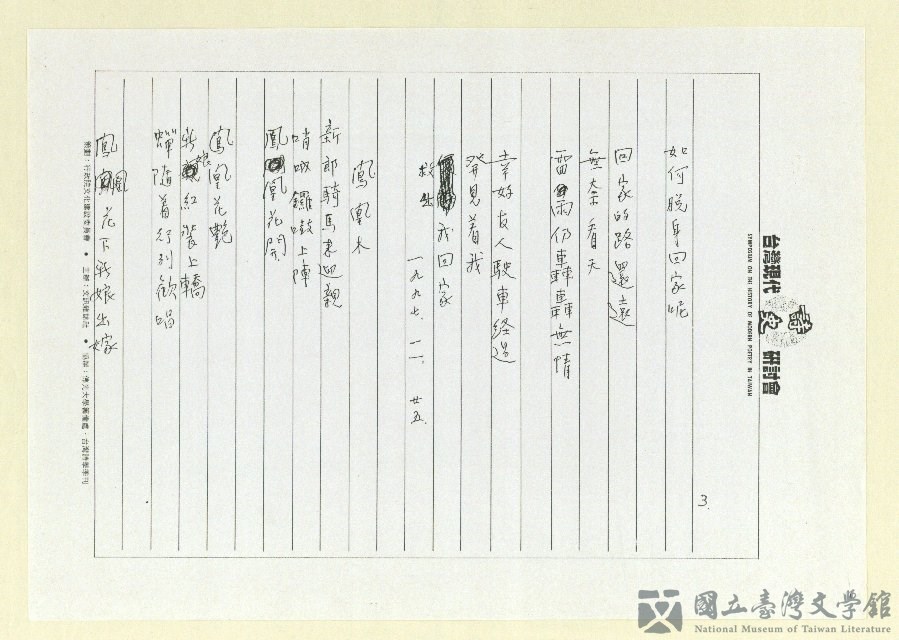 台灣現代詩史研討會
SYMPOSIUM ON THE HISTORY OF MODERN POETRY IN TAIWAN
3.
如何脫身回家呢
回家的路還遠
無奈看天
雷雨仍轟轟無情
幸好友人駛車経過
發見着我
救出我回家
一九九七.一一.廿五.
鳳凰木
新郎騎馬來迎親
哨吶鑼鼓上陣
鳳凰花開
鳳凰花艷
新娘紅裝上轎
蟬隨着行列歡唱
鳳凰花下新娘出嫁
策劃：行政院文化建設委員會 ● 主辦：文訊雜誌社 ● 協辦：台灣詩學季刊
國立臺灣文學館
National Museum of Taiwan Literature